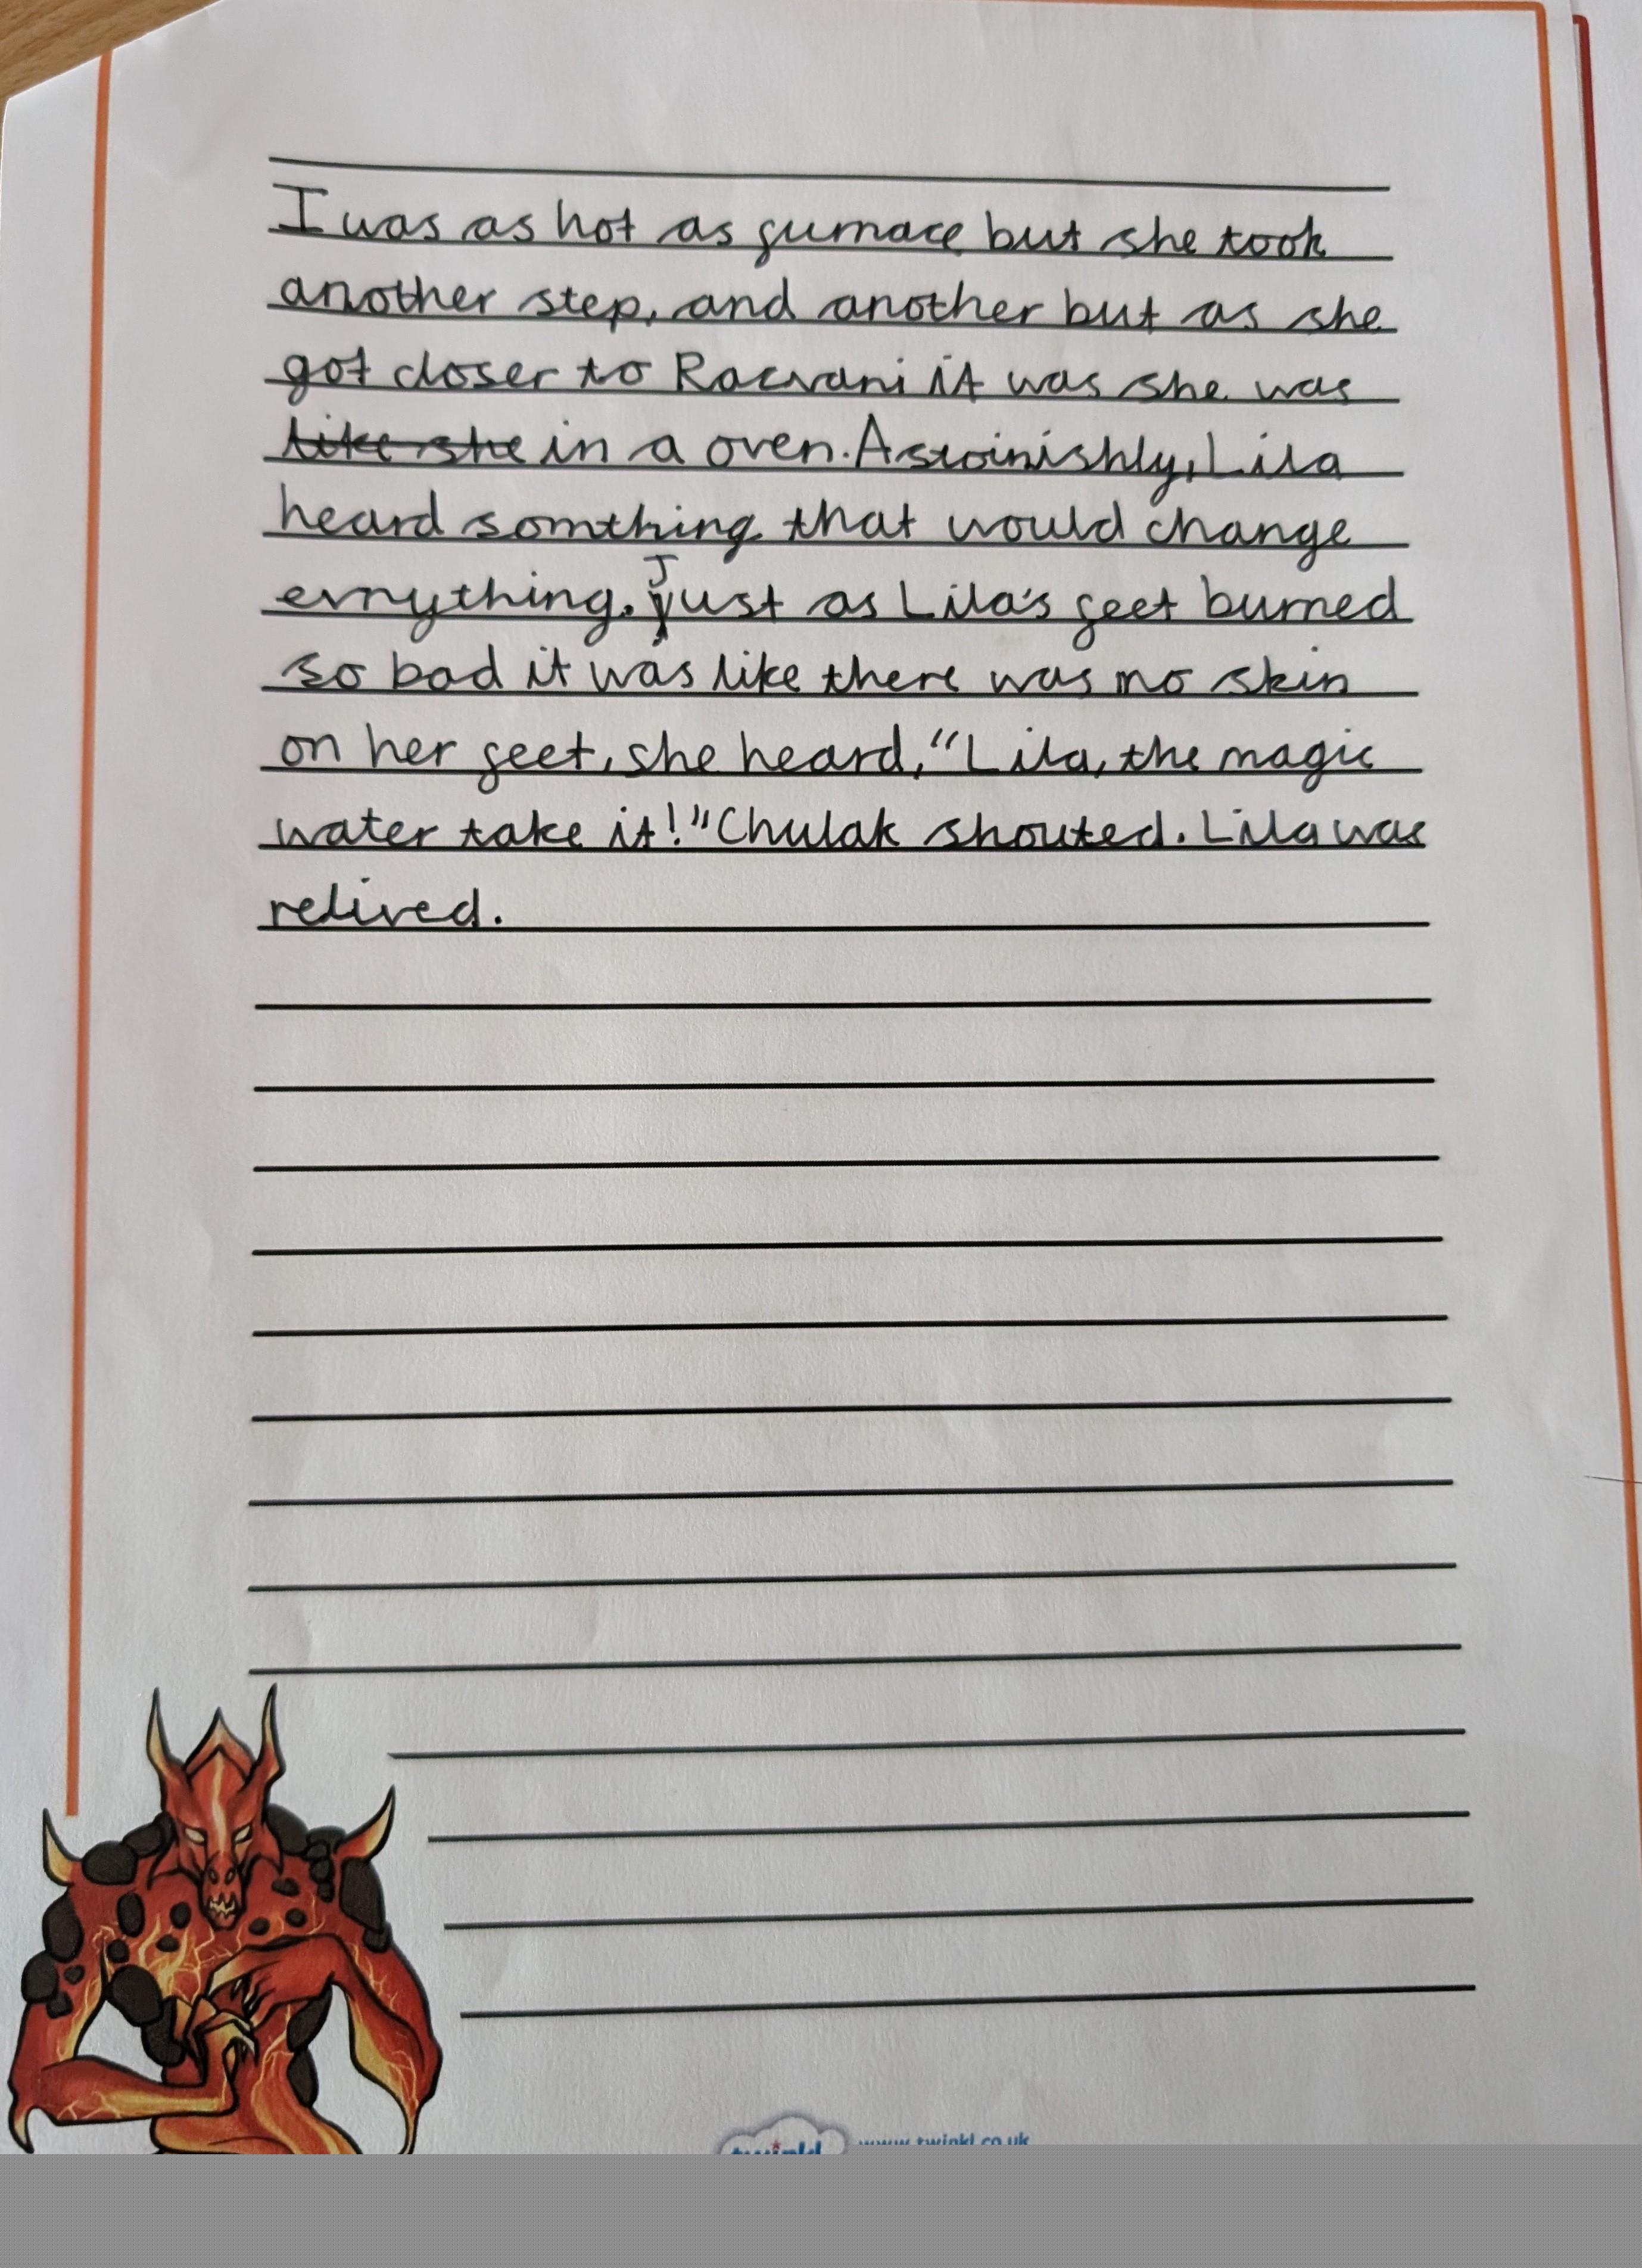 I was as hot as furnace but she took
another step, and another but as she
got closer to Racvani it was she was
like she in a oven. Astoinishly, Lila
heard somthing that would change
evrything. Just as Lila's feet burned
so bad it was like there was no skin
on her feet, she heard, "Lila, the magic
water take it!" Chulak shouted. Lila was
relived.
twinkl www.twinkl.co.uk